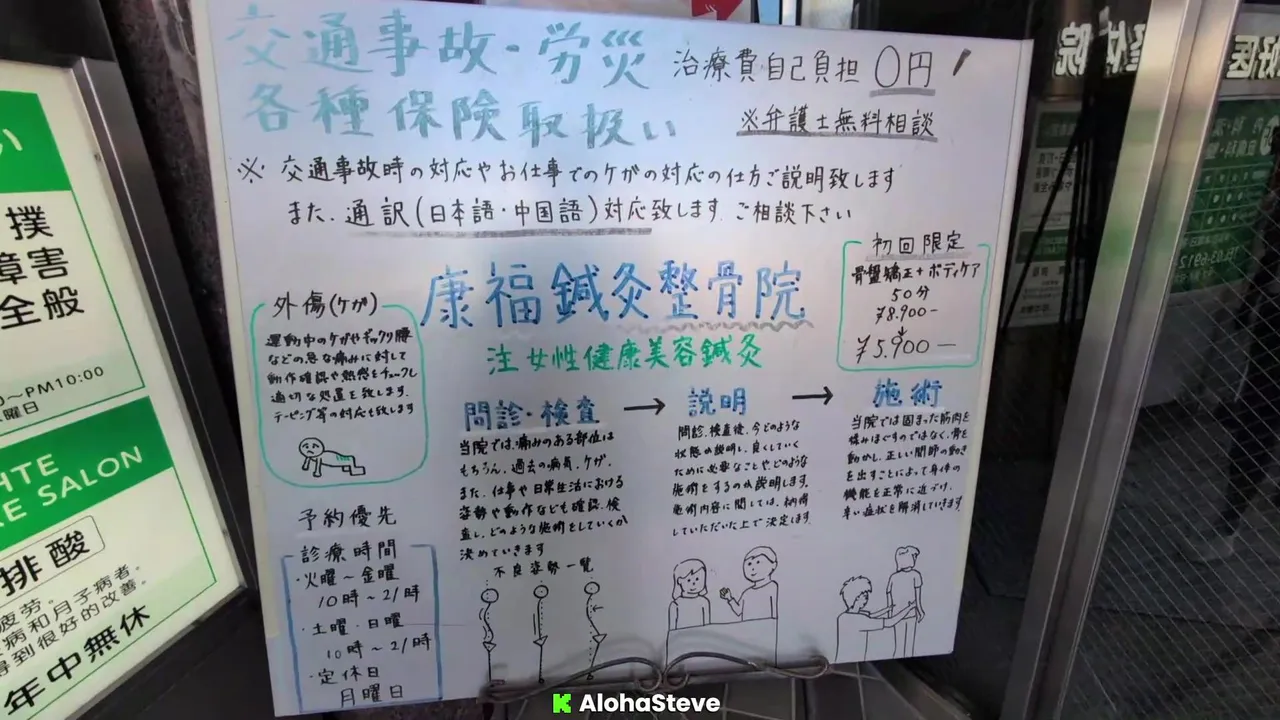 交通事故・労災
各種保険取扱い
治療費自己負担 0円!
※弁護士無料相談
※ 交通事故時の対応やお仕事でのケガの対応の仕方ご説明致します
また、通訳(日本語・中国語)対応致します ご相談下さい
康福鍼灸整骨院
注女性健康美容鍼灸
初回限定
骨盤矯正+ボディケア
50分
¥8.900-
↓
¥5.900-
外傷(ケガ)
運動中のケガやギックリ腰
などの急な痛みに対して
動作確認や熱感をチェックし
適切な処置を致します.
テーピング等の対応も致します
予約優先
診療時間
・火曜~金曜
10時~21時
・土曜・日曜
10時~21時
・定休日
月曜日
問診・検査 →
当院では、痛みのある部位は
もちろん、過去の病気、ケガ、
また、仕事や日常生活における
姿勢や動作なども確認、検
査し、どのような施術をしていくか
決めていきます
不良姿勢一覧
説明 →
問診、検査後、今どのような
状態か説明し、良くしていく
ために必要なことやどのような
施術をするのか説明します。
施術内容に関しては、納得
していただいた上で決定します.
施術
当院では固まった筋肉を
揉みほぐすのではなく、骨を
動かし、正しい関節の動き
を出すことによって身体の
機能を正常に近づけ、
辛い症状を解消していきます.
い
撲
障害
全般
~PM10:00
曜日
HTE
RE SALON
排酸
疲労。
病和月子病者。
得到很好的改善。
年中無休
AlohaSteve